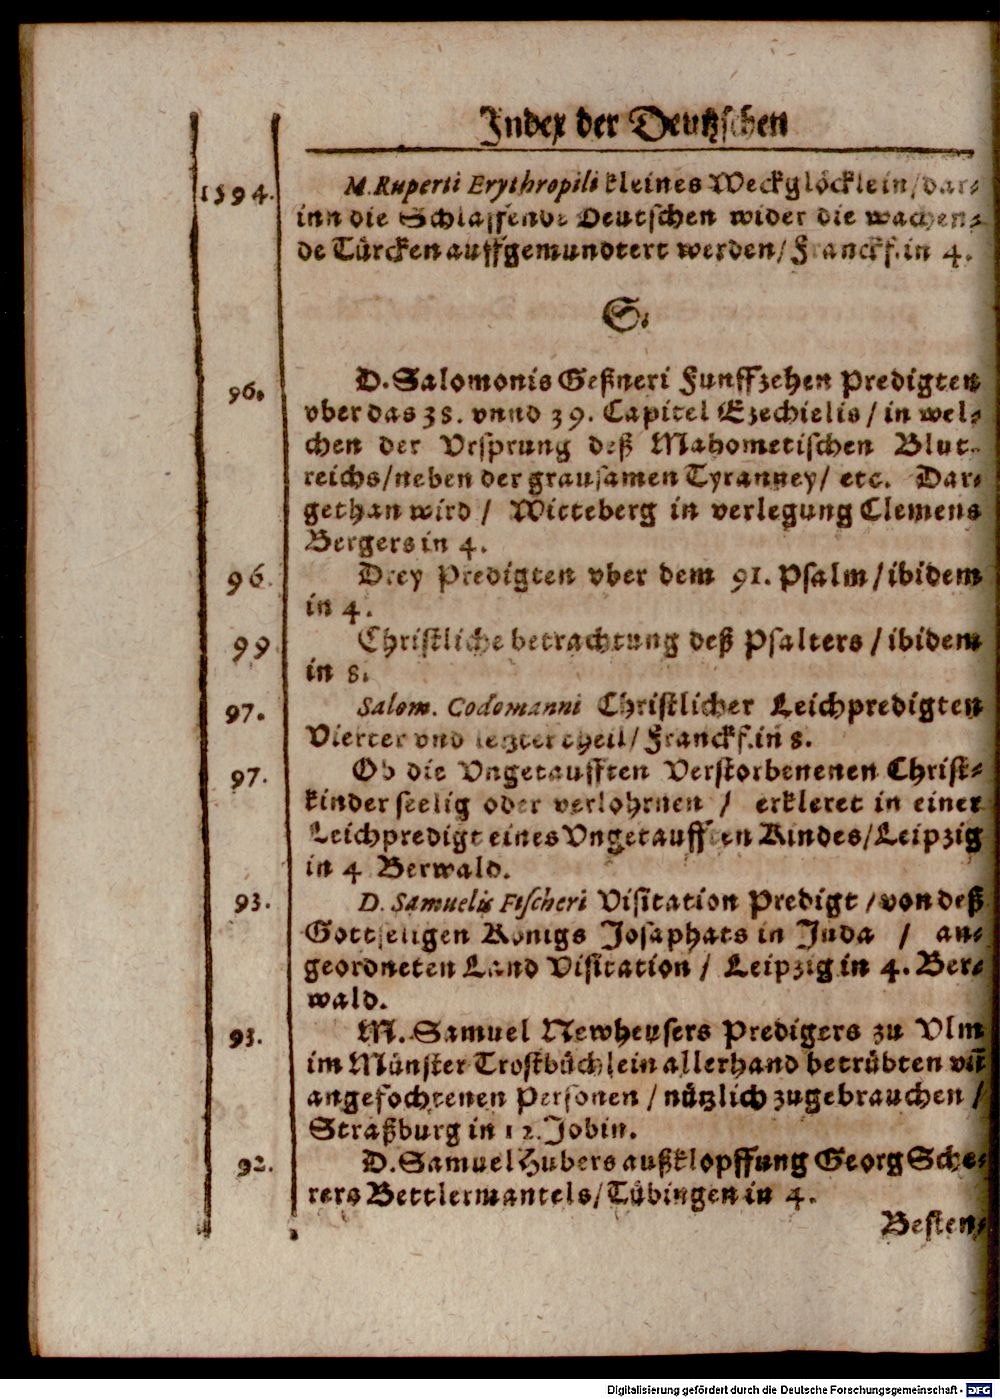 Index der Deutzschen
1594. M. Ruperti Erythropili kleines Weckglöcklein/dar-
inn die Schlaffende Deutschen wider die wachen-
de Türcken auffgemundtert werden/Franckf. in 4.
S.
96. D. Salomonis Geßneri Funffzehen Predigten
vber das 38. vnnd 39. Capitel Ezechielis/in wel-
chen der Vrsprung deß Mahometischen Blut-
reichs/neben der grausamen Tyranney/ etc. Dar-
gethan wird / Witteberg in verlegung Clemens
Bergers in 4.
96. Drey Predigten vber dem 91. Psalm/ibidem
in 4.
99. Christliche betrachtung deß Psalters / ibidem
in 8.
97. Salom. Codomanni Christlicher Leichpredigten
Vierter vnd letzter theil/Franckf. in 8.
97. Ob die Vngetaufften Verstorbenenen Christ-
kinder seelig oder verlohrnen / erkleret in einer
Leichpredigt eines Vngetaufften Kindes/Leipzig
in 4 Berwald.
93. D. Samuelis Fischeri Visitation Predigt /von deß
Gottseligen Königs Josaphats in Juda / an-
geordneten Land Visitation / Leipzig in 4. Ber-
wald.
93. M. Samuel Newheusers Predigers zu Vlm
im Münster Trostbüchlein allerhand betrübten vñ
angefochtenen Personen / nützlich zugebrauchen /
Straßburg in 12. Jobin.
92. D. Samuel Hubers außklopffung Georg Sche-
rers Bettlermantels/Tübingen in 4.
Besten-
Digitalisierung gefördert durch die Deutsche Forschungsgemeinschaft - DFG